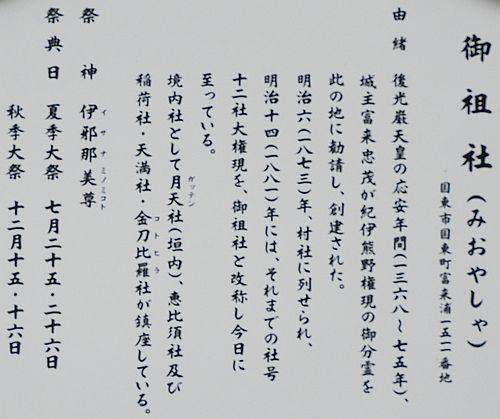 御祖社(みおやしゃ)
国東市国東町富来浦一五一一番地
由緒 後光巌天皇の応安年間(一三六八〜七五年)、
城主富来忠茂が紀伊熊野権現の御分霊を
此の地に勧請し、創建された。
明治六(一八七三)年、村社に列せられ、
明治十四(一八八一)年には、それまでの社号
十二社大権現を、御祖社と改称し今日に
至っている。
境内社として月天社(垣内)、恵比須社及び
ガッテン
稲荷社・天満社・金刀比羅社が鎮座している。
コトヒラ
祭神 伊邪那美尊
イサナミノミコト
祭典日 夏季大祭 七月二十五・二十六日
秋季大祭 十二月十五・十六日